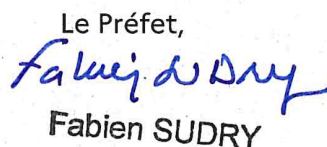 Le Préfet,
Fabien SUDRY
Fabien SUDRY